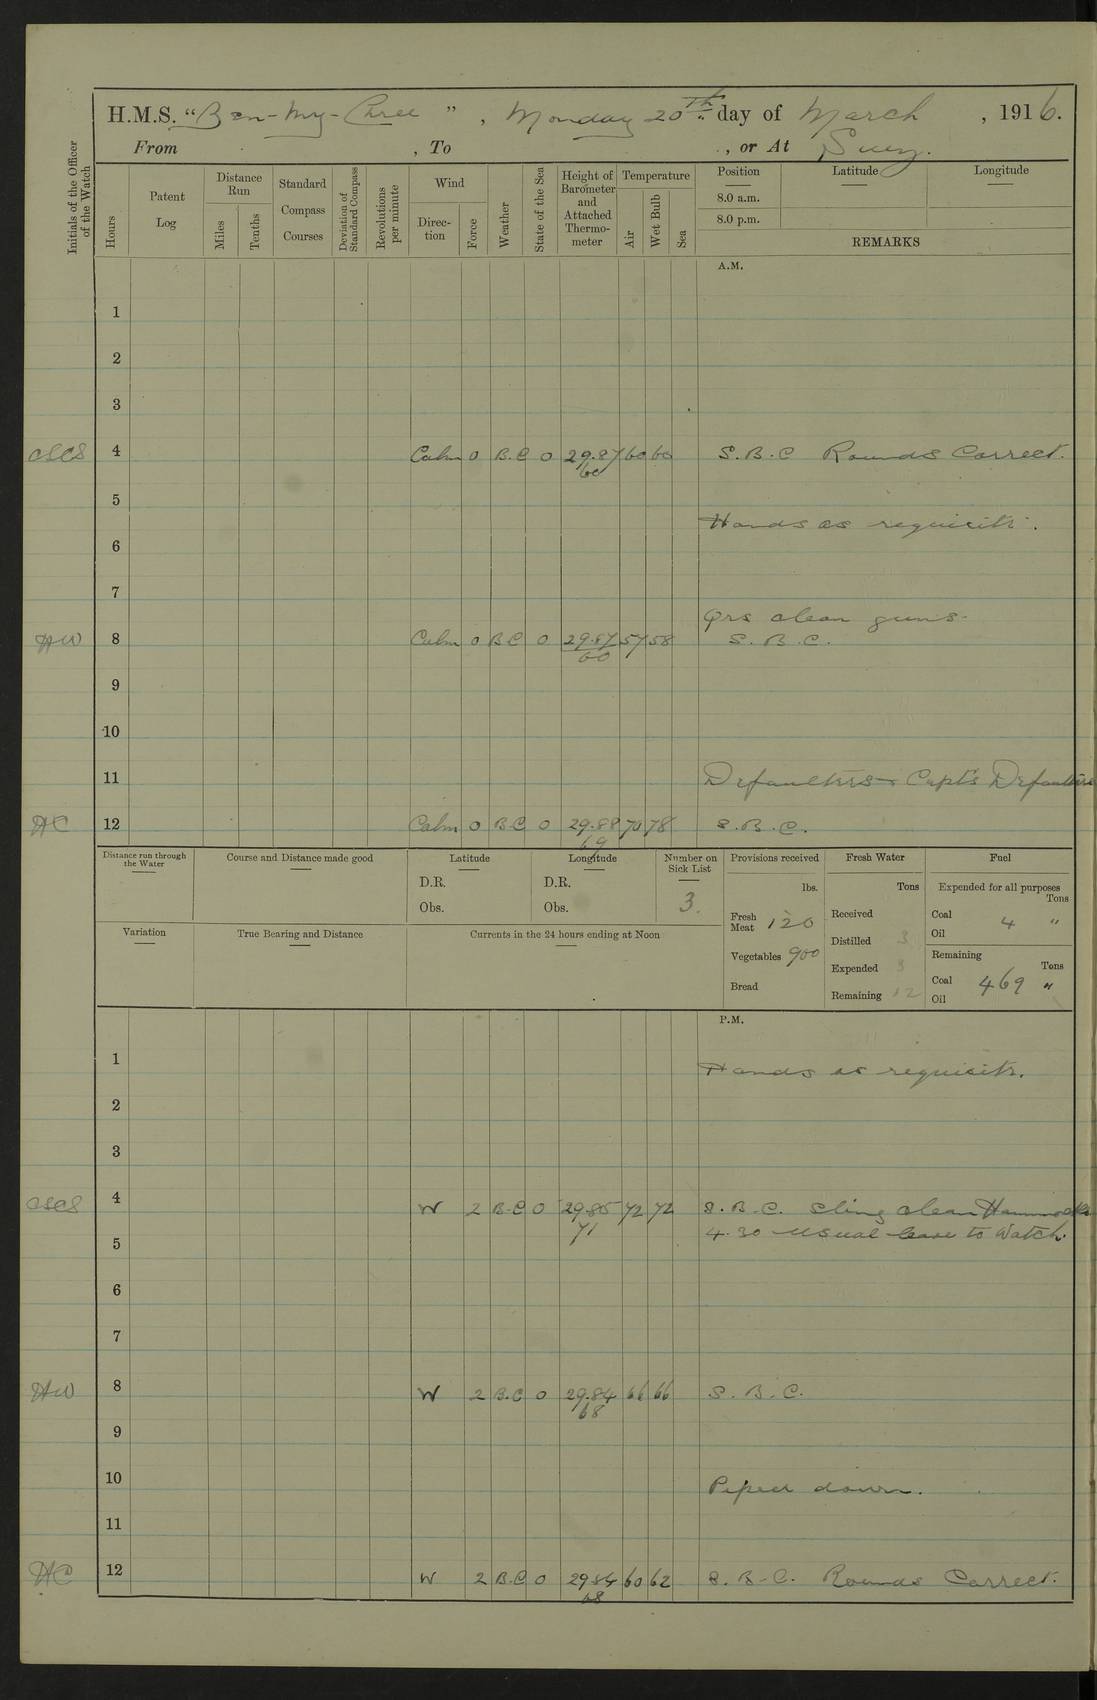 H.M.S. "Ben-My-Chree", Monday 20th day of March, 1916.
From , To , or At Suez.
Initials of the Officer of the Watch
Hours
Patent Log
Distance Run
Miles
Tenths
Standard Compass Courses
Deviation of Standard Compass
Revolutions per minute
Wind
Direc-tion
Force
Weather
State of the Sea
Height of Barometer and Attached Thermo-meter
Temperature
Air
Wet Bulb
Sea
Position
Latitude
Longitude
8.0 a.m.
8.0 p.m.
REMARKS
A.M.
1
2
3
CSCS 4 Calm 0 B.C 0 29.87 60 60 S.B.C Rounds Correct.
60
5
Hands as requisite.
6
7
Qrs clean guns.
HW 8 Calm 0 B C 0 29.87 57 58 S.B.C.
60
9
10
11 Defaulters & Capt's Defaulters
HC 12 Calm 0 B C 0 29.88 70 78 S.B.C.
69
Distance run through the Water
Course and Distance made good
Latitude
D.R.
Obs.
Longitude
D.R.
Obs.
Number on Sick List
3.
Provisions received
lbs.
Fresh Meat 120
Vegetables 900
Bread
Fresh Water
Tons
Received
Distilled 3
Expended 3
Remaining 12
Fuel
Expended for all purposes
Tons
Coal 4 "
Oil
Remaining
Tons
Coal 469 "
Oil
Variation
True Bearing and Distance
Currents in the 24 hours ending at Noon
P.M.
1 Hands as requisite.
2
3
CSCS 4 W 2 B.C 0 29.85 72 72 S.B.C. Sling clean Hammocks
71
4.30 Usual leave to Watch.
5
6
7
HW 8 W 2 B.C 0 29.84 66 66 S.B.C.
68
9
10 Piped down.
11
HC 12 W 2 B.C 0 29.84 60 62 S.B.C. Rounds Correct.
68